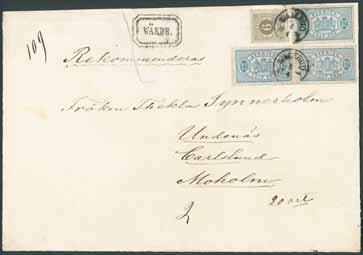 109
WÄRDE.
Rekommenderas
Fröken Thekla Synnerholm
Undenäs
Carlslund
Moholm
2
20 öre